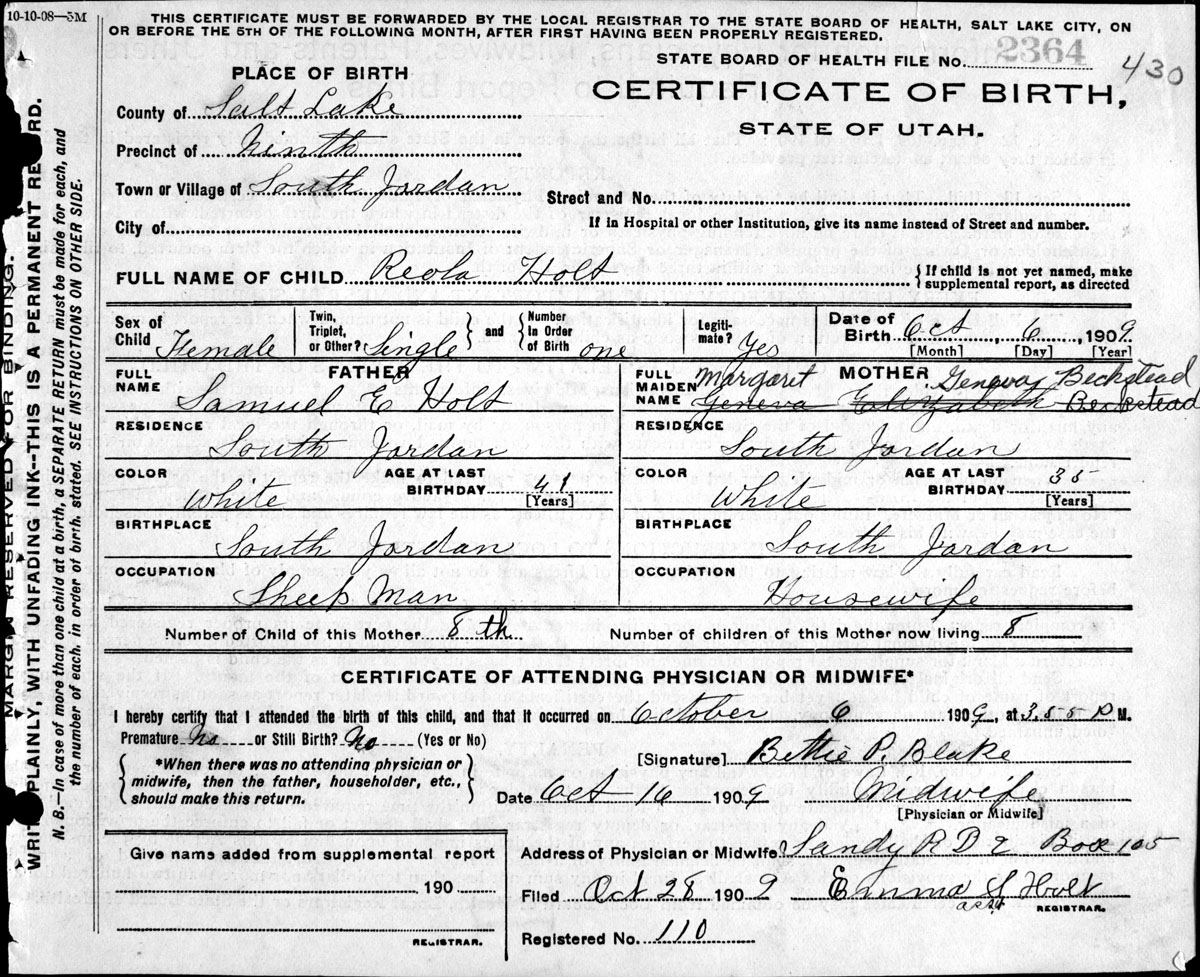 10-10-08—5M
THIS CERTIFICATE MUST BE FORWARDED BY THE LOCAL REGISTRAR TO THE STATE BOARD OF HEALTH, SALT LAKE CITY, ON
OR BEFORE THE 5TH OF THE FOLLOWING MONTH, AFTER FIRST HAVING BEEN PROPERLY REGISTERED.
STATE BOARD OF HEALTH FILE No. 2364
430
PLACE OF BIRTH
CERTIFICATE OF BIRTH,
STATE OF UTAH.
County of Salt Lake
Precinct of Ninth
Town or Village of South Jordan
Street and No.
City of
If in Hospital or other Institution, give its name instead of Street and number.
FULL NAME OF CHILD Reola Holt { If child is not yet named, make
supplemental report, as directed
Sex of Child Female
Twin, Triplet, or Other? Single } and { Number In Order of Birth one
Legiti-mate? Yes
Date of Birth Oct 6, 1909
[Month] [Day] [Year]
FATHER
FULL NAME Samuel E Holt
MOTHER
FULL MAIDEN NAME Margaret Geneva Beckstead
Geneva Elizabeth Beckstead
RESIDENCE South Jordan
RESIDENCE South Jordan
COLOR White AGE AT LAST BIRTHDAY 41 [Years]
COLOR White AGE AT LAST BIRTHDAY 35 [Years]
BIRTHPLACE South Jordan
BIRTHPLACE South Jordan
OCCUPATION Sheep Man
OCCUPATION Housewife
Number of Child of this Mother 8th
Number of children of this Mother now living 8
CERTIFICATE OF ATTENDING PHYSICIAN OR MIDWIFE*
I hereby certify that I attended the birth of this child, and that it occurred on October 6 1909, at 3.55 P M.
Premature No or Still Birth? No (Yes or No)
{ *When there was no attending physician or
midwife, then the father, householder, etc.,
should make this return. }
[Signature] Bettie P. Blake
Date Oct 16 1909 Midwife
[Physician or Midwife]
Give name added from supplemental report
190
REGISTRAR.
Address of Physician or Midwife Sandy R D 2 Box 105
Filed Oct 28 1909 Emma S Holt
asst REGISTRAR.
Registered No. 110
MARGIN RESERVED FOR BINDING.
WRITE PLAINLY, WITH UNFADING INK—THIS IS A PERMANENT RECORD.
N. B.—In case of more than one child at a birth, a SEPARATE RETURN must be made for each, and
the number of each, in order of birth, stated. SEE INSTRUCTIONS ON OTHER SIDE.